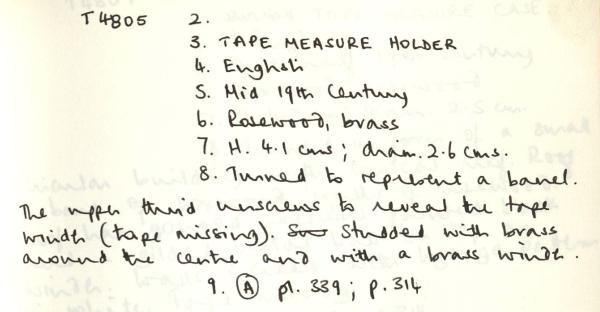 T4805 2.
3. TAPE MEASURE HOLDER
4. English
5. Mid 19th Century
6. Rosewood, brass
7. H. 4.1 cms; diam. 2.6 cms.
8. Turned to represent a barrel.
The upper third unscrews to reveal the tape
winder (tape missing). Studded with brass
around the centre and with a brass winder.
9. A pl. 339; p. 314